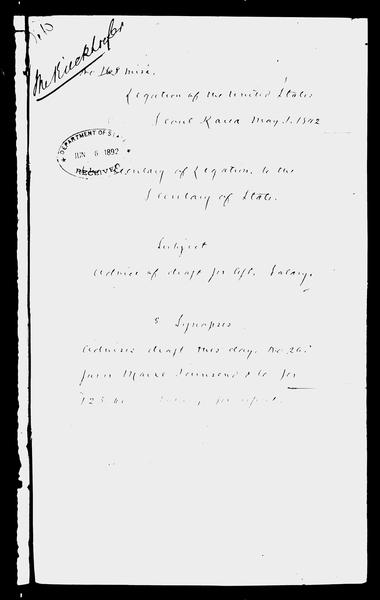 Mr Kieckhoefer
No 169 misc.
Legation of the United States
Seoul Korea May 1. 1892
DEPARTMENT OF STATE
JUN 6 1892
RECEIVED
Secretary of Legation to the
Secretary of State.
Subject
Advice of draft for Apl. Salary.
Synopsis
Advises draft this day, No 26,
favor Morse Townsend & Co for
Salary for April.